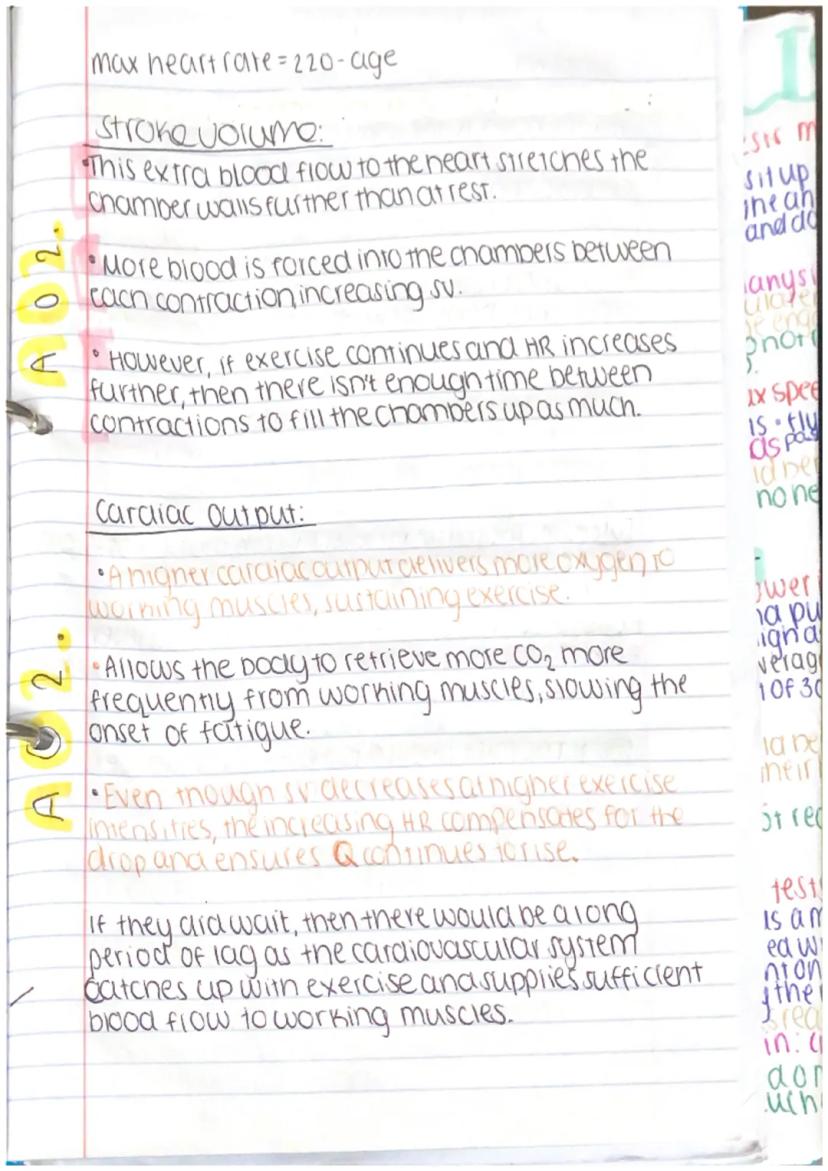 max heart rate = 220 - age
stroke volume:
•This extra blood flow to the heart stretches the
chamber walls further than at rest.
A02.
•More blood is forced into the chambers between
each contraction, increasing SV.
• However, if exercise continues and HR increases
further, then there isn't enough time between
contractions to fill the chambers up as much.
cardiac output:
•A higher cardiac output delivers more oxygen to
working muscles, sustaining exercise.
A02..
•Allows the body to retrieve more CO₂ more
frequently from working muscles, slowing the
onset of fatigue.
•Even though SV decreases at higher exercise
intensities, the increasing HR compensates for the
drop and ensures Q continues to rise.
If they did wait, then there would be a long
period of lag as the cardiovascular system
catches up with exercise and supplies sufficient
blood flow to working muscles.
sit up
and do
none
test
in: